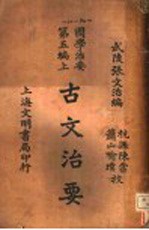 武陵張文治編
杭縣陳棠校
蕭山喻璞
古文治要
國學治要
第五編上
上海文明書局印行